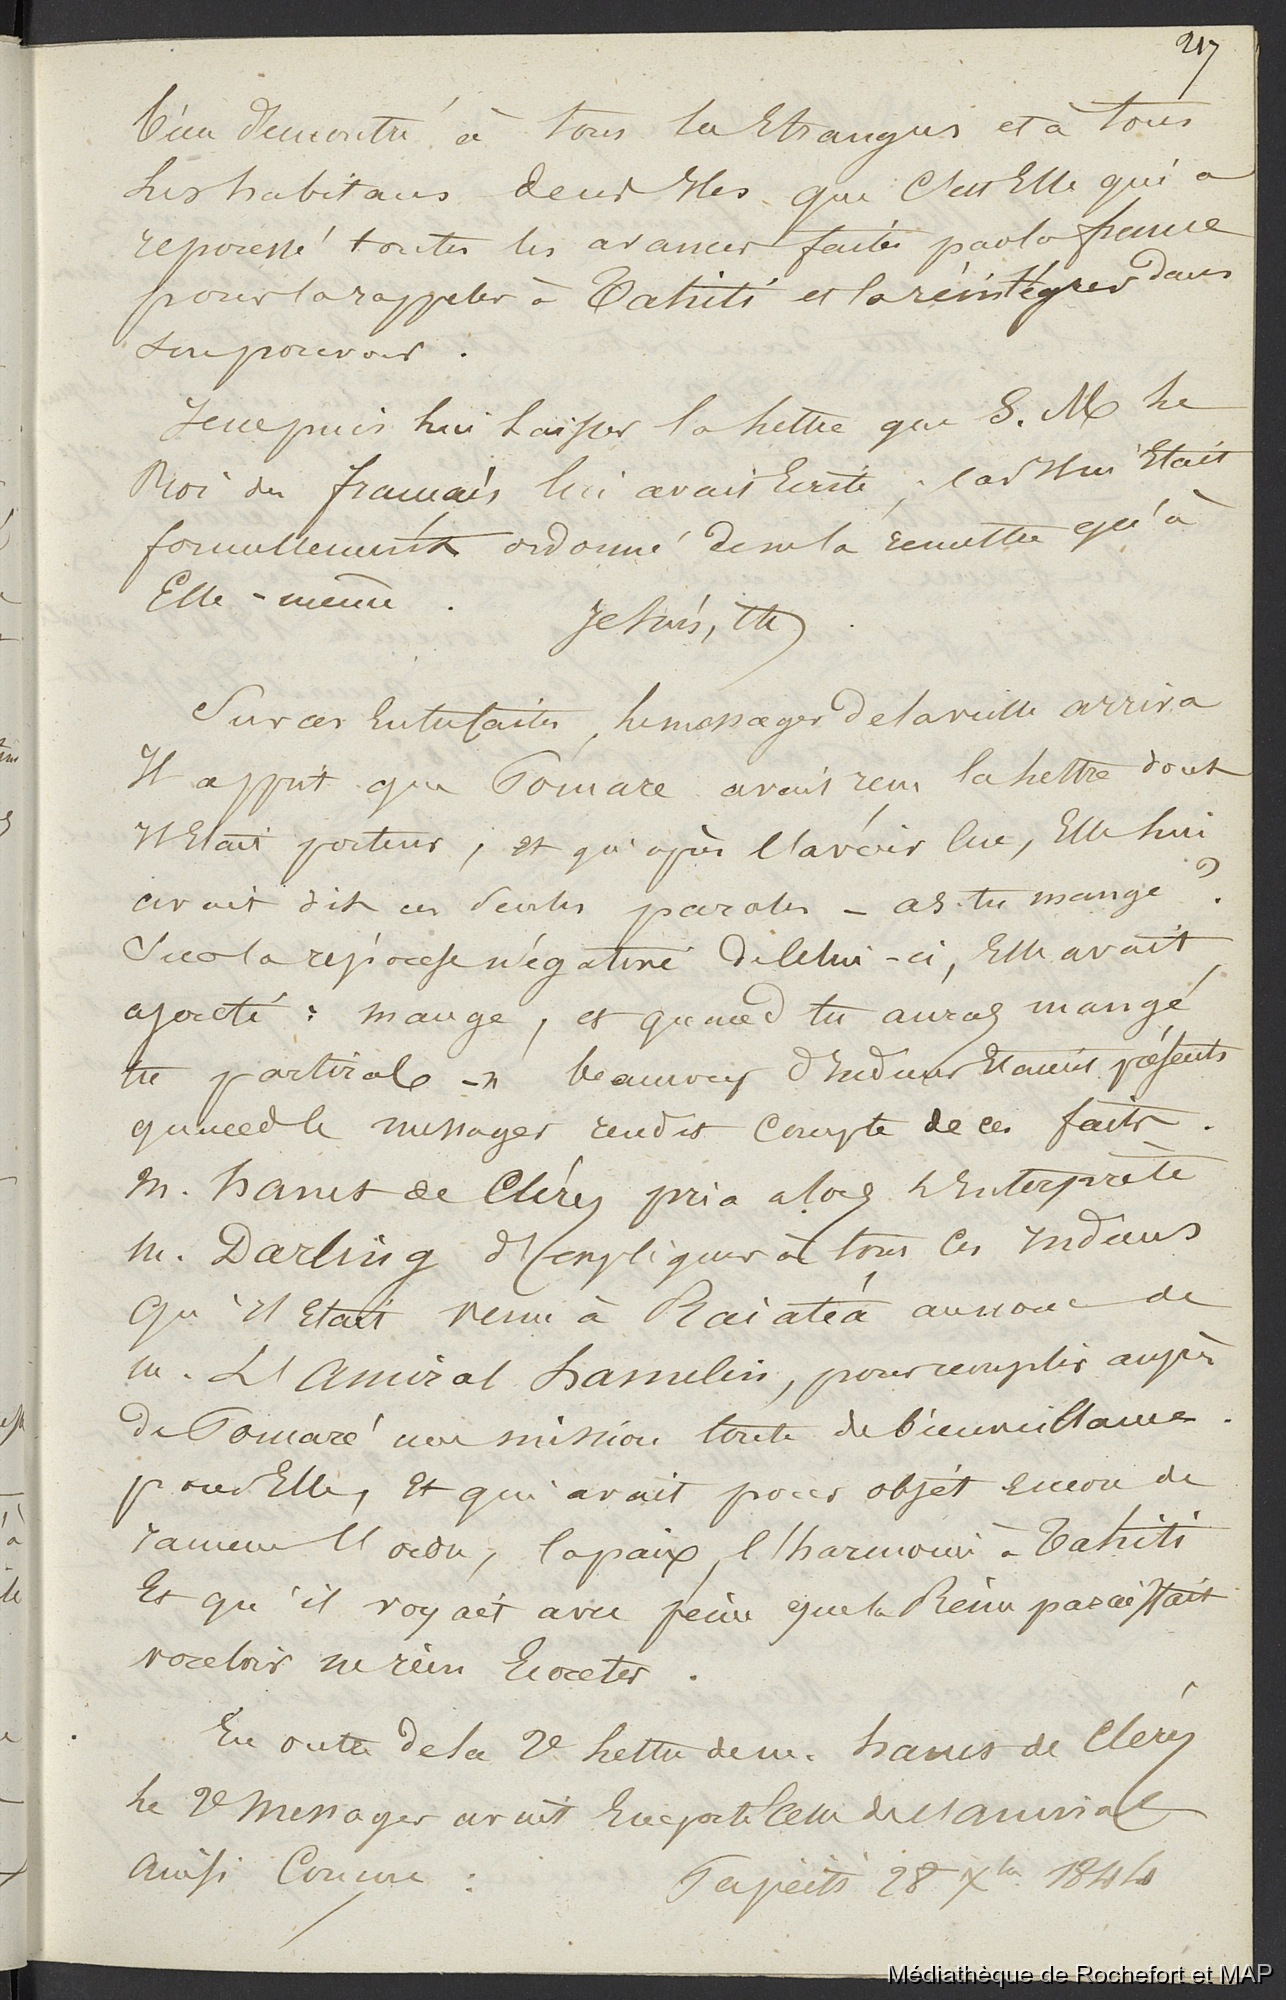 217
bien démontré à tous les Etrangers et à tous
les habitans de ces Iles que C'est Elle qui a
repoussé toutes les avances faites par la france
pour la rappeler à Tahiti et la réintégrer dans
son pouvoir.
Je ne puis lui laisser la lettre que S. M le
Roi des français lui avait Ecrite, car Il m'Etait
formellement ordonné de ne la remettre qu'à
Elle-même.
Je suis, etc.
Sur ces Entrefaites, le messager de la veille arriva
Il apprit que Pomare avait reçu la lettre dont
Il Etait porteur, et qu'après l'avoir lue, Elle lui
avait dit ces seules paroles – as-tu mangé ?
Sur la réponse négative de Celui-ci, Elle avait
ajouté : mange, et quand tu auras mangé
tu partiras – beaucoup d'Indiens Etaient présents
quand le messager rendit Compte de ces faits.
M. hanet de Cléry pria alors L'Interprète
M. Darling d'expliquer à tous ces Indiens
Qu'il Etait venu à Raiatéa au nom de
M. L'Amiral hamelin, pour remplir auprès
de Pomaré une mission toute de bienveillance
pour Elle, Et qui avait pour objet encore de
ramener l'ordre, la paix, l'harmonie à Tahiti
Et qu'il voyait avec peine que la Reine paraissait
vouloir ne rien Ecouter.
En outre de la 2e lettre de M. hanet de Cléry
le 2e Messager avait Emporté Celle de l'amiral
Ainsi Conçue :
Papeïti 28 Xbre 1844
Médiathèque de Rochefort et MAP